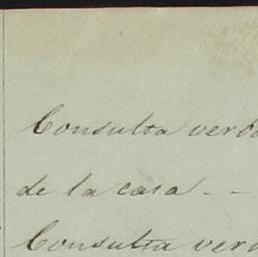 Consulta verb
de la casa - -
Consulta verb